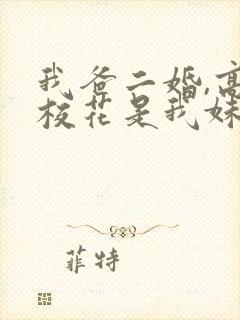 我爸二婚,高
校花是我妹
菲特